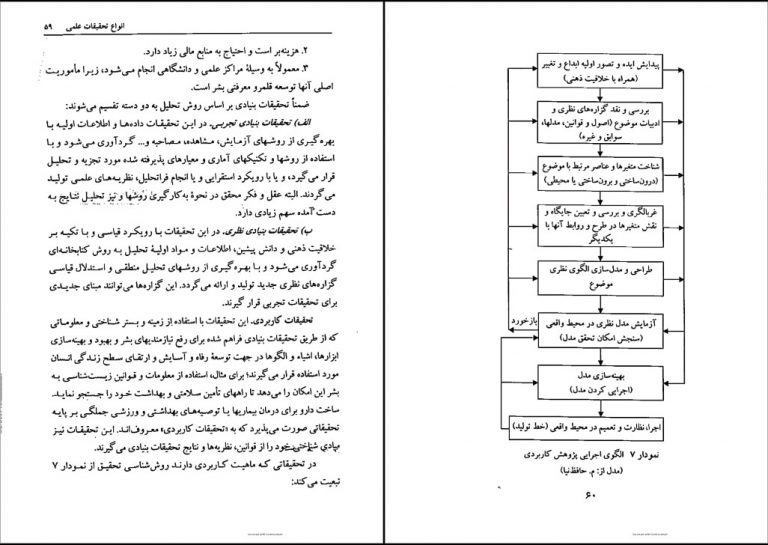 انواع تحقیقات علمی ۵۹
۲. هزینه‌بر است و احتیاج به منابع مالی زیاد دارد.
۳. معمولاً به وسیلهٔ مراکز علمی و دانشگاهی انجام می‌شود، زیرا مأموریت
اصلی آنها توسعه قلمرو معرفتی بشر است.
ضمناً تحقیقات بنیادی بر اساس روش تحلیل به دو دسته تقسیم می‌شوند:
الف) تحقیقات بنیادی تجربی. در این تحقیقات داده‌ها و اطلاعات اولیه با
بهره‌گیری از روشهای آزمایش، مشاهده، مصاحبه و... گردآوری می‌شود و با
استفاده از روشها و تکنیکهای آماری و معیارهای پذیرفته شده مورد تجزیه و تحلیل
قرار می‌گیرد، و یا با رویکرد استقرایی و یا انجام فراتحلیل، نظریه‌های علمی تولید
می‌گردند. البته عقل و فکر محقق در نحوهٔ به‌کارگیری روشها و نیز تحلیل نتایج به
دست آمده سهم زیادی دارد.
ب) تحقیقات بنیادی نظری. در این تحقیقات با رویکرد قیاسی و با تکیه بر
خلاقیت ذهنی و دانش پیشین، اطلاعات و مواد اولیهٔ تحلیل به روش کتابخانه‌ای
گردآوری می‌شود و با بهره‌گیری از روشهای تحلیل منطقی و استدلال قیاسی
گزاره‌های نظری جدید تولید و ارائه می‌گردد. این گزاره‌ها می‌توانند مبنای جدیدی
برای تحقیقات تجربی قرار گیرند.
تحقیقات کاربردی. این تحقیقات با استفاده از زمینه و بستر شناختی و معلوماتی
که از طریق تحقیقات بنیادی فراهم شده برای رفع نیازمندیهای بشر و بهبود و بهینه‌سازی
ابزارها، اشیاء و الگوها در جهت توسعهٔ رفاه و آسایش و ارتقای سطح زندگی انسان
مورد استفاده قرار می‌گیرند؛ برای مثال، استفاده از معلومات و قوانین زیست‌شناسی به
بشر این امکان را می‌دهد تا راههای تأمین سلامتی و بهداشت خود را جستجو نماید.
ساخت دارو برای درمان بیماریها یا توصیه‌های بهداشتی و ورزشی جملگی بر پایه
تحقیقاتی صورت می‌پذیرد که به «تحقیقات کاربردی» معروف‌اند. این تحقیقات نیز
مبادی شناختی خود را از قوانین، نظریه‌ها و نتایج تحقیقات بنیادی می‌گیرند.
در تحقیقاتی که ماهیت کاربردی دارند روش‌شناسی تحقیق از نمودار ۷
تبعیت می‌کند:
پیدایش ایده و تصور اولیه ابداع و تغییر
(همراه با خلاقیت ذهنی)
بررسی و نقد گزاره‌های نظری و
ادبیات موضوع (اصول و قوانین، مدلها،
سوابق و غیره)
شناخت متغیرها و عناصر مرتبط با موضوع
(درون‌ساختی و برون‌ساختی یا محیطی)
غربالگری و بررسی و تعیین جایگاه و
نقش متغیرها در طرح و روابط آنها با
یکدیگر
طراحی و مدل‌سازی الگوی نظری
موضوع
بازخورد
آزمایش مدل نظری در محیط واقعی
(سنجش امکان تحقق مدل)
بهینه‌سازی مدل
(اجرایی کردن مدل)
اجرا، نظارت و تعمیم در محیط واقعی (خط تولید)
نمودار ۷ الگوی اجرایی پژوهش کاربردی
(مدل از: م. حافظ‌نیا)
۶۰